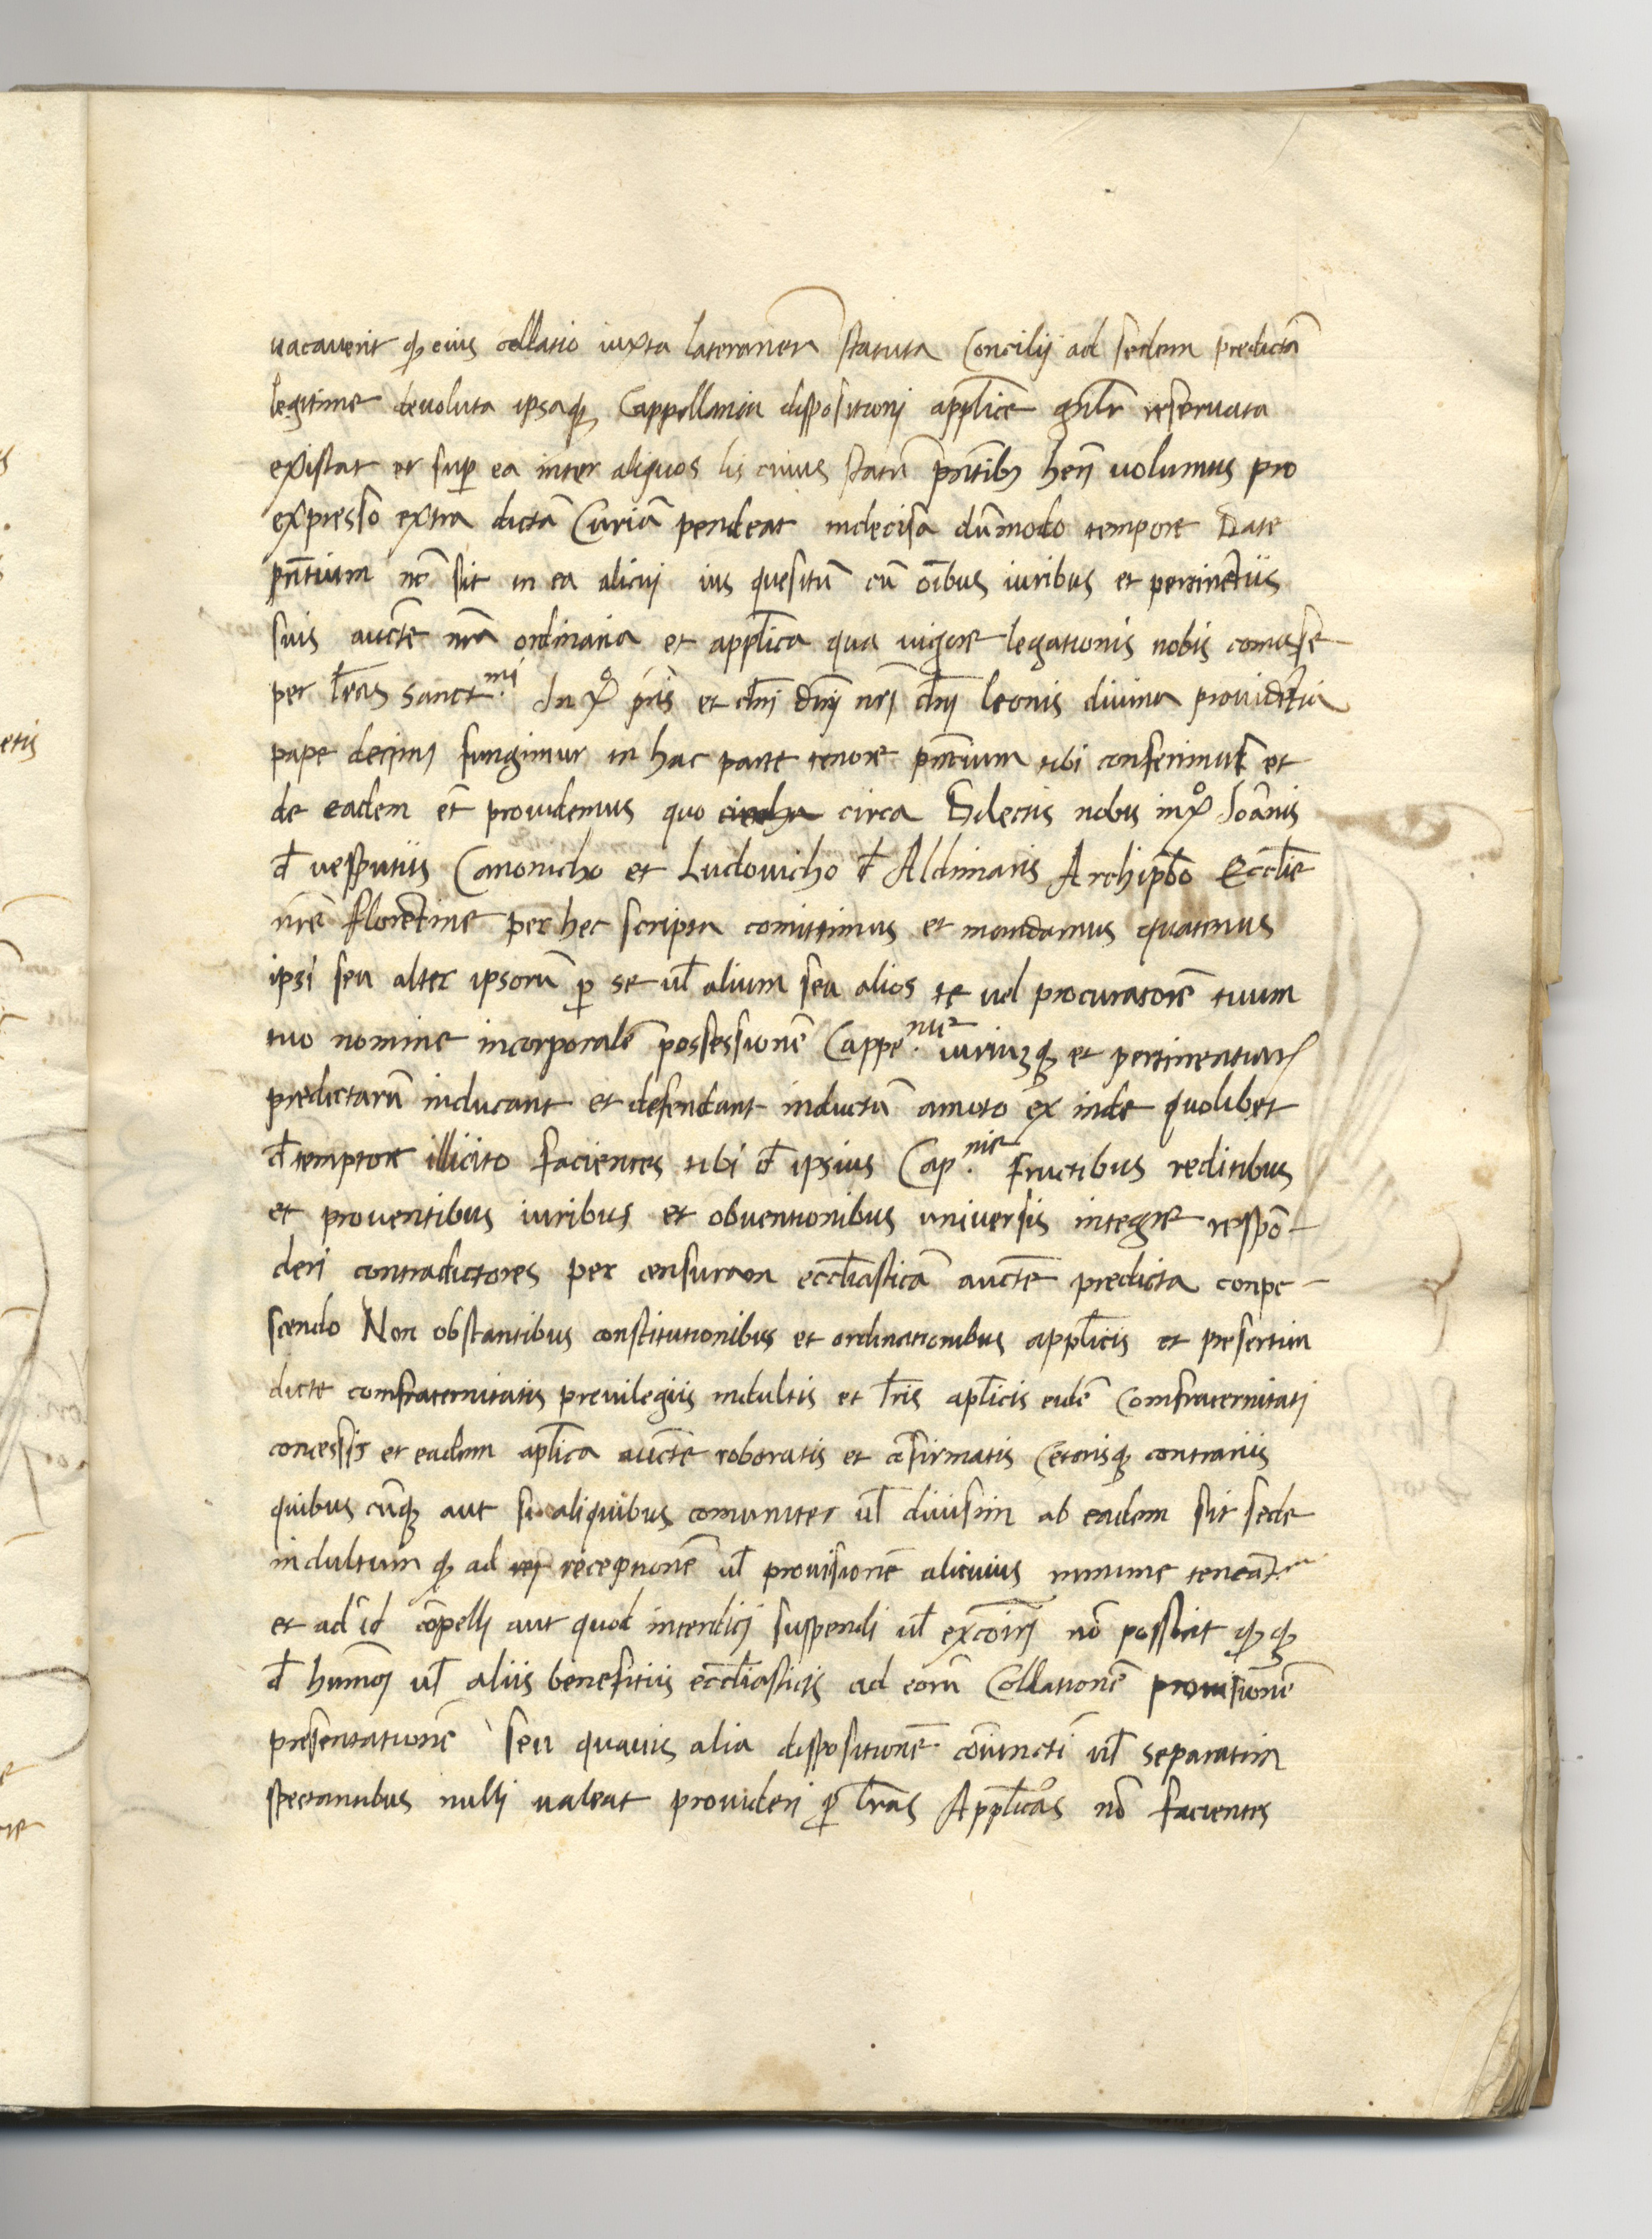 uacauerit qꝫ eius collatio iuxta lateranen statuta Concilij ad sedem predictā
legitime deuoluta ipsaqꝫ Cappellania dispositionj appl̄ice gn̄lr reseruata
existat et sup ea inter aliquos lis cuius statū pn̄tibꝫ heri uolumus pro
expresso extra dictā Curiā pendeat indecisa dūmodo tempore Date
pn̄tium nō sit in ea alicuj ius quesitū cū oībus iuribus et pertinētiis
suis aucte nr̄a ordinaria et appl̄ica qua uigore legationis nobis comisse
per lr̄as Sanct.mi In xo pr̄is et dn̄j dn̄j nr̄j dn̄j leonis diuina prouidētia
pape decimj fungimur in hac parte tenore pn̄tium tibi conferimus et
de eadem et̄ prouidemus quo circha circa Dilectis nobis in xo Ioānis
đ uesputiis Canonicho et Ludouicho đ Aldimaris Archipb̄o Eccl̄ie
nr̄e florētine per hec scripta comittimus et mandamus quatenus
ipsi seu alter ipsorū ꝑ se ul̄ alium seu alios te uel procuratorē tuum
tuo nomine incorporalē possessionē Cappe.nie iuriumqꝫ et pertinentiarꝝ
predictarū inducant et defendant inductā amoto ex inde quolibet
đtemptore illicito facientes tibi đ ipsius Cap.nie fructibus reditibus
et prouentibus iuribus et obuentionibus uniuersis integre respō-
deri contradictores per censuram eccl̄iasticā aucte predicta conpe-
scendo Non obstantibus constitutionibus et ordinationibus appl̄icis et presertim
dicte comfraternitatis preuilegiis indultis et lr̄is apl̄icis eidē Comfraternitati
concessis et eadem apl̄ica aucte roboratis et cōfirmatis Ceterisqꝫ contrariis
quibus cūqꝫ aut si aliquibus comuniter ul̄ diuisim ab eadem sit sede
indultum qꝫ ad receptionē ul̄ prouisionē alicuius minime teneāt
et ad id cōpelli aut quod interdicj suspendi ul̄ excōirj nō possint qꝫ qꝫ
đ humōj ul̄ aliis benefitiis eccl̄iasticis ad eorū Collationē prouisionē
presentationē seu quauis alia dispositionē cōiunctī ul̄ separatim
spectantibus nulli ualeat prouiderj ꝑ lr̄as Appl̄icas nō facientes